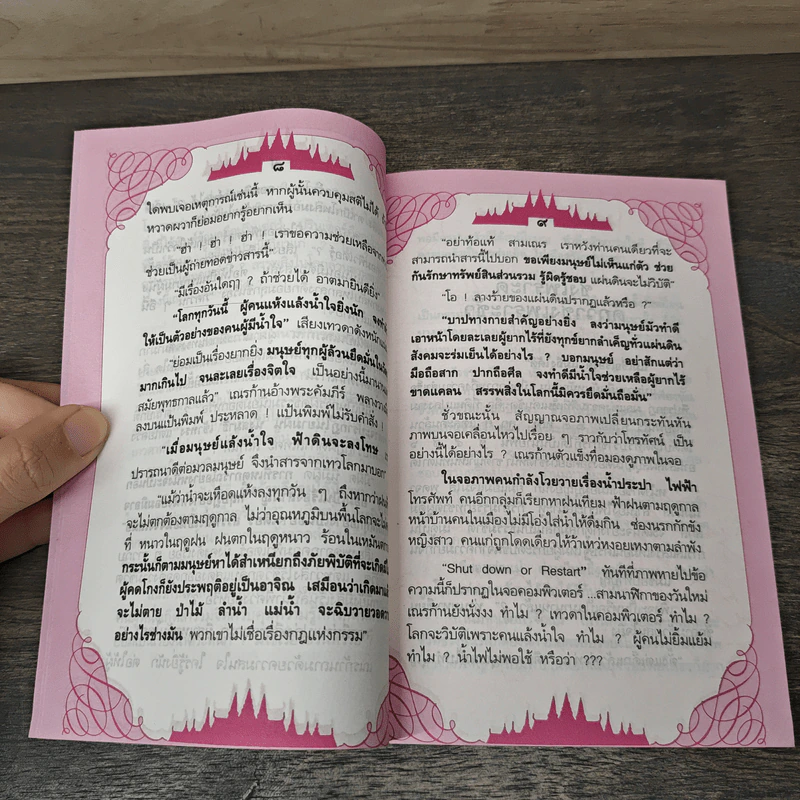 ๘
ได้พบเจอเหตุการณ์เช่นนี้ หากผู้นั้นควบคุมสติไม่ได้
หวาดผวาก็ย่อมอยากรู้อยากเห็น
"ฮ่า ! ฮ่า ! ฮ่า ! เราขอความช่วยเหลือจาก
ช่วยเป็นผู้ถ่ายทอดข่าวสารนี้"
"มีเรื่องอันใดฤๅ ? ถ้าช่วยได้ อาตมายินดียิ่ง"
"โลกทุกวันนี้ ผู้คนแห้งแล้งน้ำใจยิ่งนัก
ให้เป็นตัวอย่างของคนผู้มีน้ำใจ" เสียงเทวดาดังหนักแน่น
"ย่อมเป็นเรื่องยากยิ่ง มนุษย์ทุกผู้ล้วนยึดมั่น
มากเกินไป จนละเลยเรื่องจิตใจ เป็นอย่างนี้มา
สมัยพุทธกาลแล้ว" เณรก้านอ้างพระคัมภีร์ พลาง
ลงบนแป้นพิมพ์ ประหลาด ! แป้นพิมพ์ไม่รับคำสั่ง !
"เมื่อมนุษย์แล้งน้ำใจ ฟ้าดินจะลงโทษ
ปรารถนาดีต่อมวลมนุษย์ จึงนำสารจากเทวโลกมาบอก
"แม้ว่าน้ำจะเหือดแห้งลงทุกวัน ๆ ถึงหากว่าฝน
จะไม่ตกต้องตามฤดูกาล ไม่ว่าอุณหภูมิบนพื้นโลกจะ
ที่ หนาวในฤดูฝน ฝนตกในฤดูหนาว ร้อนในเหมันต
กระนั้นก็ตามมนุษย์หาได้สำเหนียกถึงภัยพิบัติที่จะเกิด
ผู้คดโกงก็ยังประพฤติอยู่เป็นอาจิณ เสมือนว่าเกิดมา
จะไม่ตาย ป่าไม้ ลำน้ำ แม่น้ำ จะฉิบวายวอด
อย่างไรช่างมัน พวกเขาไม่เชื่อเรื่องกฎแห่งกรรม"
๙
"อย่าท้อแท้ สามเณร เราหวังท่านคนเดียวที่จะ
สามารถนำสารนี้ไปบอก ขอเพียงมนุษย์ไม่เห็นแก่ตัว ช่วย
กันรักษาทรัพย์สินส่วนรวม รู้ผิดรู้ชอบ แผ่นดินจะไม่วิบัติ"
"โอ ! ลางร้ายของแผ่นดินปรากฏแล้วหรือ ?"
"บาปทางกายสำคัญอย่างยิ่ง ลงว่ามนุษย์มัวทำดี
เอาหน้าโดยละเลยผู้ยากไร้ที่ยังทุกข์ยากลำเค็ญทั่วแผ่นดิน
สังคมจะร่มเย็นได้อย่างไร ? บอกมนุษย์ อย่าสักแต่ว่า
มือถือสาก ปากถือศีล จงทำดีมีน้ำใจช่วยเหลือผู้ยากไร้
ขาดแคลน สรรพสิ่งในโลกนี้มิควรยึดมั่นถือมั่น"
ชั่วขณะนั้น สัญญาณจอภาพเปลี่ยนกระทันหัน
ภาพบนจอเคลื่อนไหวไปเรื่อย ๆ ราวกับว่าโทรทัศน์ เป็น
อย่างนี้ได้อย่างไร ? เณรก้านตัวแข็งทื่อมองดูภาพในจอ
ในจอภาพคนกำลังโวยวายเรื่องน้ำประปา ไฟฟ้า
โทรศัพท์ คนอีกกลุ่มก็เรียกหาฝนเทียม ฟ้าฝนตามฤดูกาล
หน้าบ้านคนในเมืองไม่มีโอ่งใส่น้ำให้ดื่มกิน ซ่องนรกกักขัง
หญิงสาว คนแก่ถูกโดดเดี่ยวให้ว้าเหว่หงอยเหงาตามลำพัง
"Shut down or Restart" ทันทีที่ภาพหายไปข้อ
ความนี้ก็ปรากฏในจอคอมพิวเตอร์ ...สามนาฬิกาของวันใหม่
เณรก้านยังนั่งงง ทำไม ? เทวดาในคอมพิวเตอร์ ทำไม ?
โลกจะวิบัติเพราะคนแล้งน้ำใจ ทำไม ? ผู้คนไม่ยิ้มแย้ม
ทำไม ? น้ำไฟไม่พอใช้ หรือว่า ???